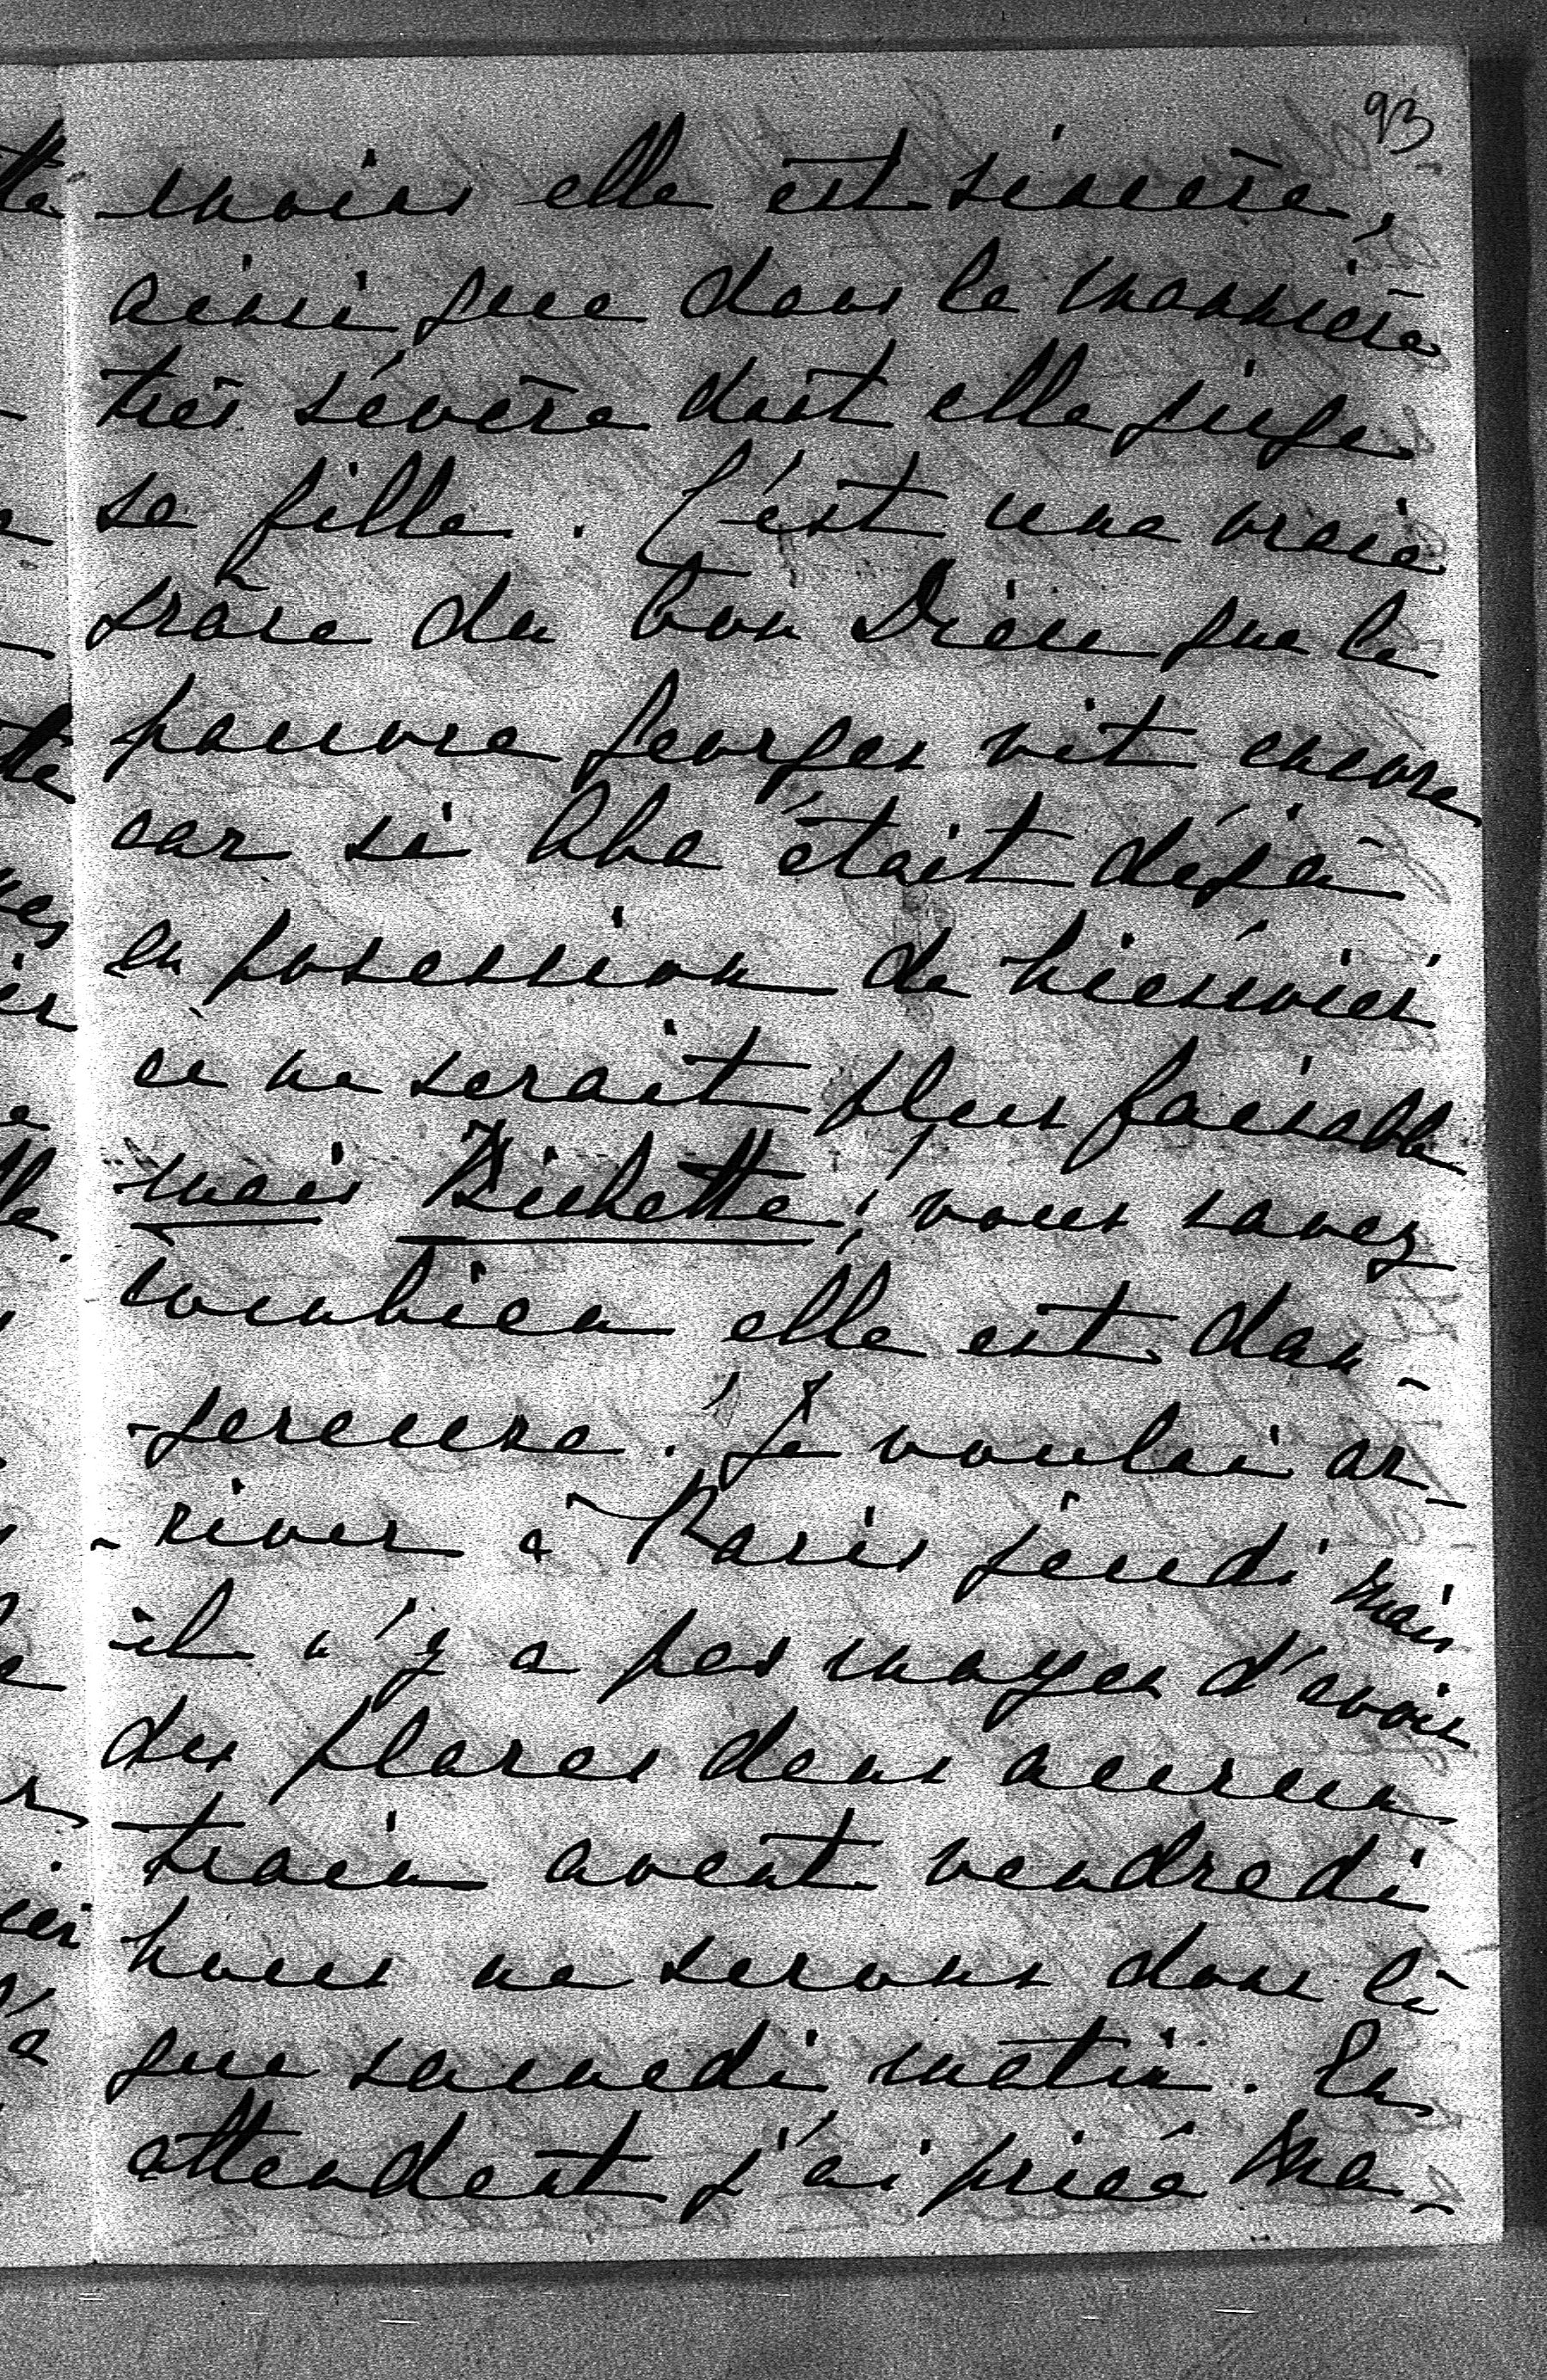 93
moins elle est sincère,
ainsi que dans la mannière
très sévère dont elle juge
sa fille. C'est une vraie
grâce du bon Dieu que le
pauvre Georges vit encore
car si Aba était déjà
en posession de
ce ne serait plus faisable
mais Bichette; vous savez
combien elle est dan-
-gereuse. Je voulai ar-
-river à Paris jeudi mais
il n'y a pas moyen d'avoir
des places dans aucun
train avant vendredi
nous ne serons donc là
que samedi matin. En
attendant j'ai priée Ma-